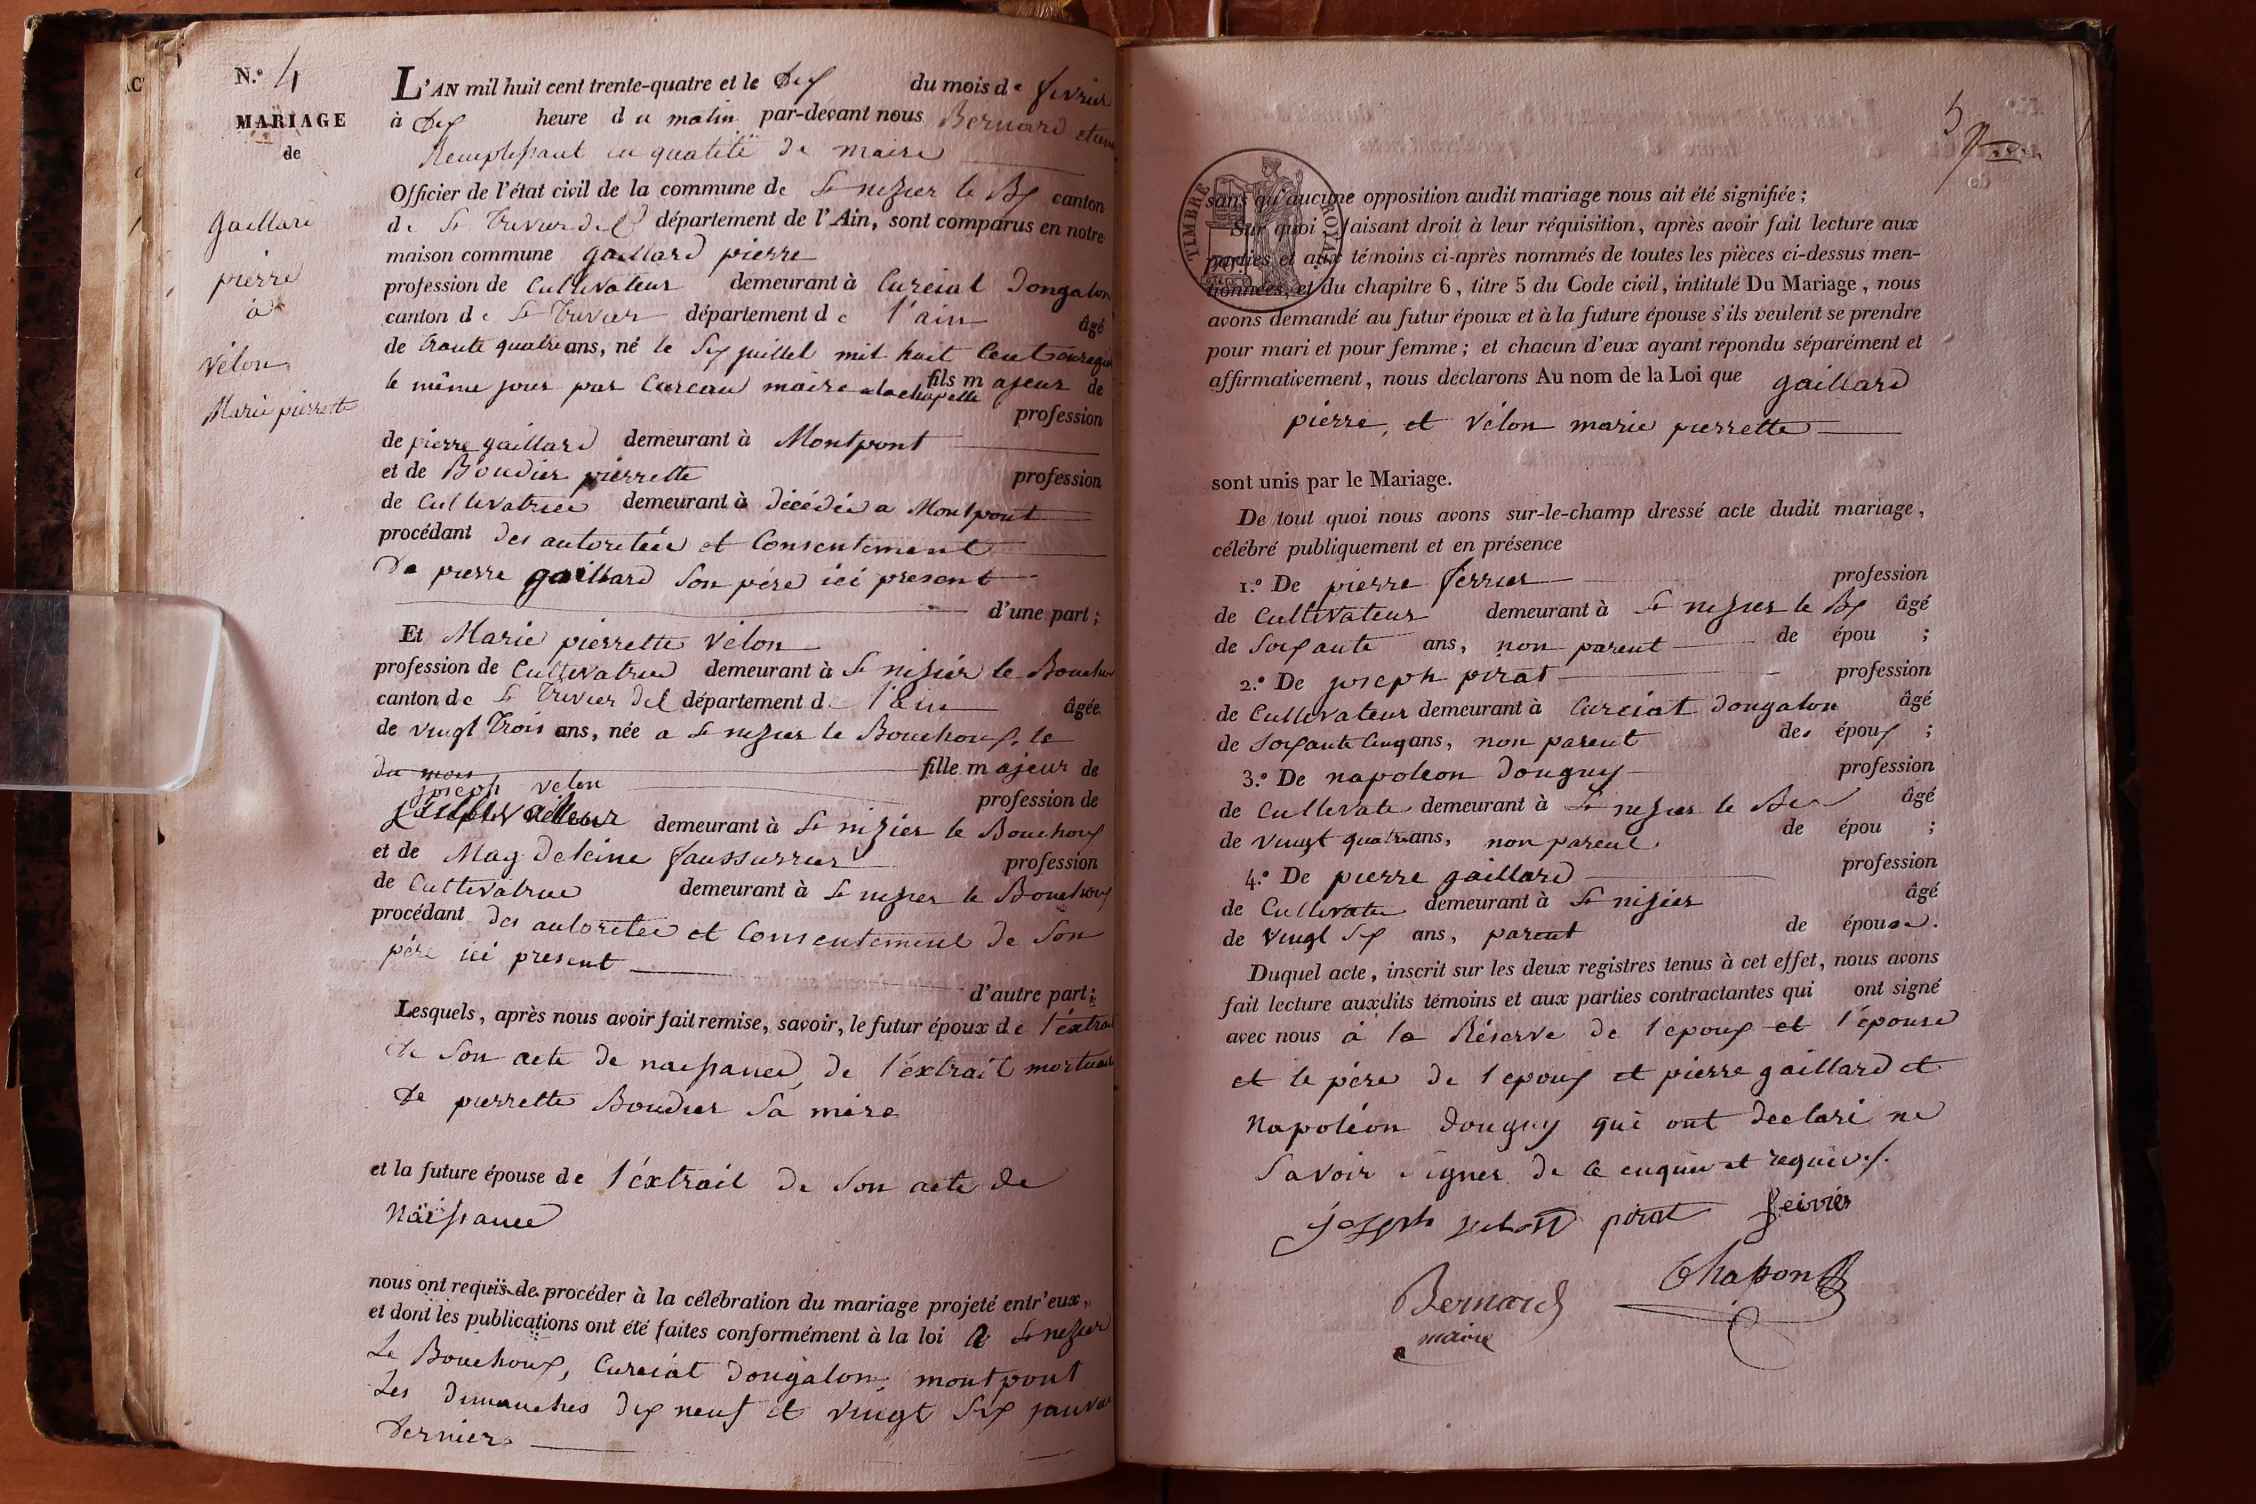 N.º 4
MARIAGE
de
gaillard
pierre
à
vélon
Marie pierrette
L'AN mil huit cent trente-quatre et le dix du mois de fevrier
à dix heure du matin par-devant nous Bernard
Remplissant en qualité de maire
Officier de l'état civil de la commune de St nizier le Bx canton
de St Trivier de C département de l'Ain, sont comparus en notre
maison commune gaillard pierre
profession de Cultivateur demeurant à Curciat dongalon
canton de St Trivier département de l'ain âgé
de trante quatre ans, né le Six juillet mil huit Cent
le même jour par Cureau maire a la chapelle fils majeur de
profession
de pierre gaillard demeurant à Montpont
et de Boudier pierrette profession
de Cultivatrice demeurant à décédée a Montpont
procédant des autoritée et Consentement
De pierre gaillard Son père ici present
d'une part;
Et Marie pierrette vélon
profession de Cultivatrice demeurant à St nizier le Bouchoux
canton de St Trivier de C département de l'ain âgée
de vingt trois ans, née a St nizier le Bouchoux le
du mois fille majeur de
joseph velon profession de
Cultivateur demeurant à St nizier le Bouchoux
et de Magdeleine faussurrier profession
de Cultivatrice demeurant à St nizier le Bouchoux
procédant des autoritée et Consentement de Son
père ici present
d'autre part;
Lesquels, après nous avoir fait remise, savoir, le futur époux de l'éxtrait
de Son acte de naissance, de l'éxtrait mortuaire
de pierrette Boudier Sa mère
et la future épouse de l'éxtrait de Son acte de
Naissance
nous ont requis de procéder à la célébration du mariage projeté entr'eux,
et dont les publications ont été faites conformément à la loi a St nizier
Le Bouchoux, Curciat dongalon, montpont
Les dimanches dix neuf et vingt Six janvier
dernier
5
TIMBRE ROYAL
sans qu'aucune opposition audit mariage nous ait été signifiée;
Sur quoi faisant droit à leur réquisition, après avoir fait lecture aux
parties et aux témoins ci-après nommés de toutes les pièces ci-dessus men-
tionnées, et du chapitre 6, titre 5 du Code civil, intitulé Du Mariage, nous
avons demandé au futur époux et à la future épouse s'ils veulent se prendre
pour mari et pour femme; et chacun d'eux ayant répondu séparément et
affirmativement, nous déclarons Au nom de la Loi que gaillard
pierre, et vélon marie pierrette
sont unis par le Mariage.
De tout quoi nous avons sur-le-champ dressé acte dudit mariage,
célébré publiquement et en présence
1.º De pierre ferrier profession
de Cultivateur demeurant à St nizier le Bx âgé
de Soixante ans, non parent de épou ;
2.º De joseph pirat profession
de Cultivateur demeurant à Curciat dongalon âgé
de Soixante Cinq ans, non parent des époux ;
3.º De napoléon douguy profession
de Cultivate demeurant à St nizier le Bx âgé
de vingt quatre ans, non parent de épou ;
4.º De pierre gaillard profession
de Cultivate demeurant à St nizier âgé
de vingt Six ans, parent de épouse.
Duquel acte, inscrit sur les deux registres tenus à cet effet, nous avons
fait lecture auxdits témoins et aux parties contractantes qui ont signé
avec nous à la Réserve de l'epoux et l'épouse
et le père de l'epoux et pierre gaillard et
Napoléon douguy qui ont declaré ne
Savoir signer de ce enquis et requis.
joseph velon pirat feivrier
Bernard Chapon
maire